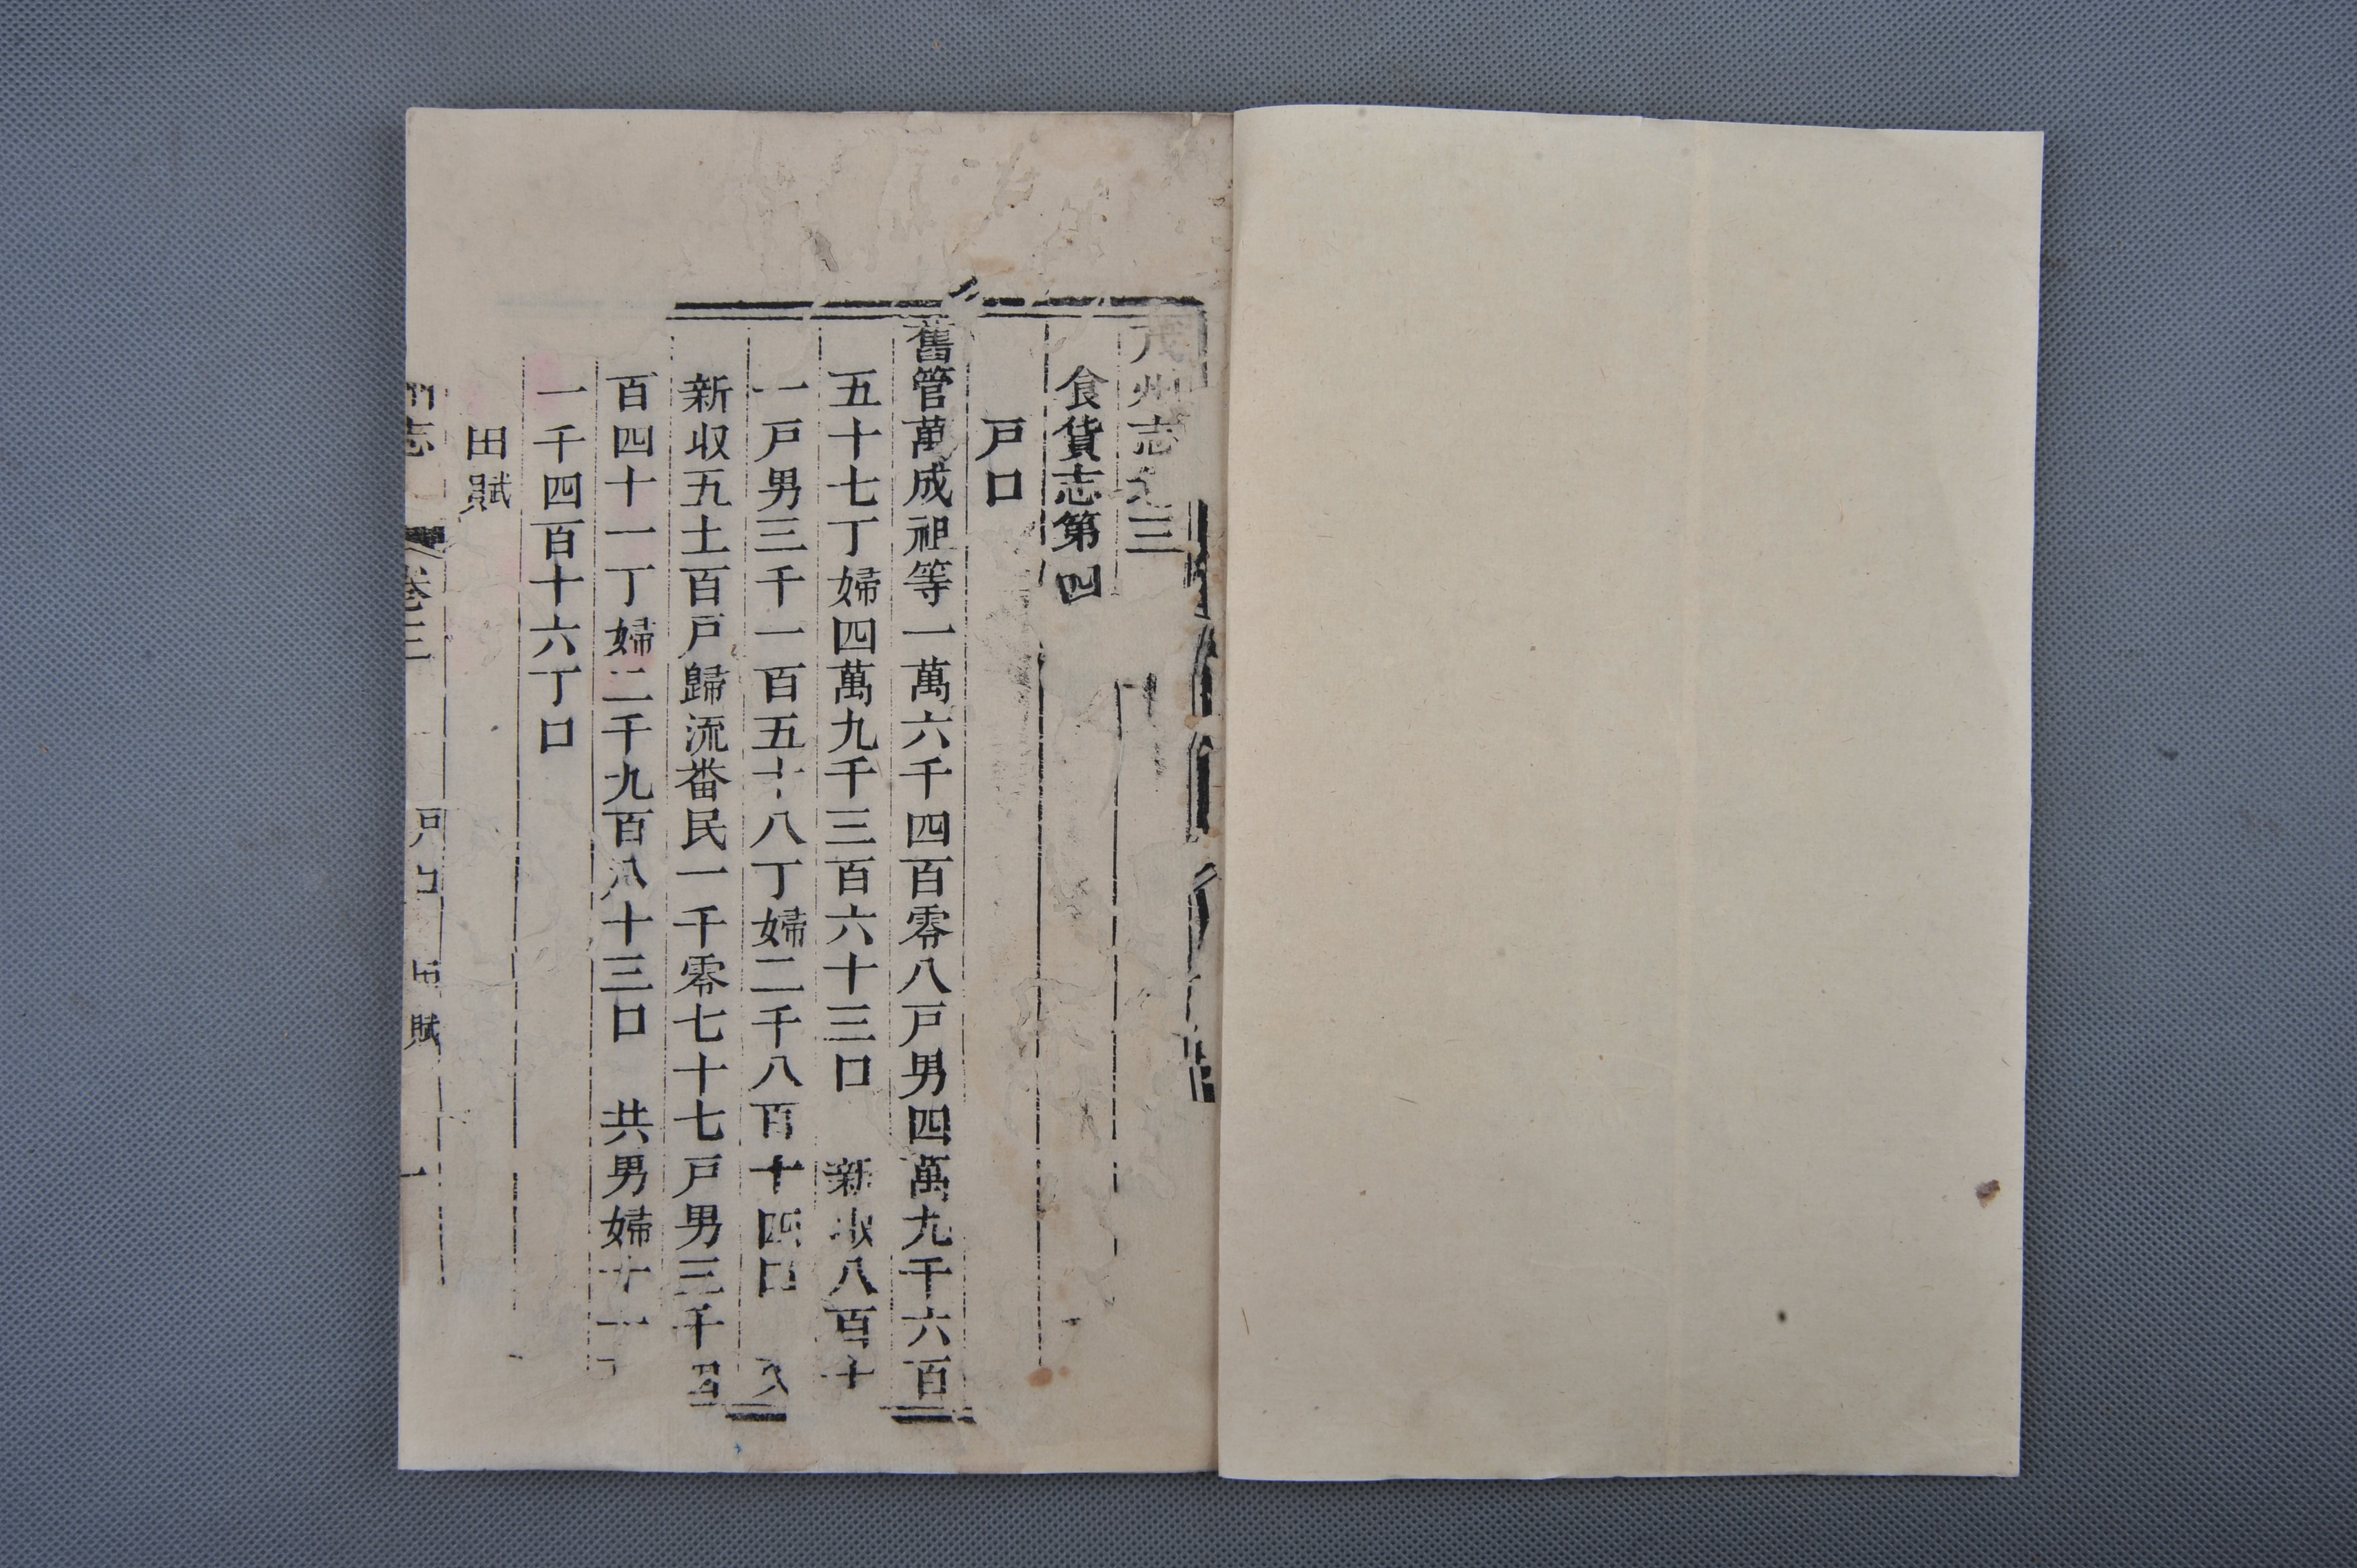 茂州志卷三
食貨志第四
戸口
舊管萬成祖等一萬六千四百零八戸男四萬九千六百
五十七丁婦四萬九千三百六十三口　新收八百十
一戸男三千一百五十八丁婦二千八百十四口　又
新收五土百戸歸流畨民一千零七十七戸男三千四
百四十一丁婦二千九百八十三口　共男婦十一
一千四百十六丁口
田賦
州志　卷三　戸口　田賦　一